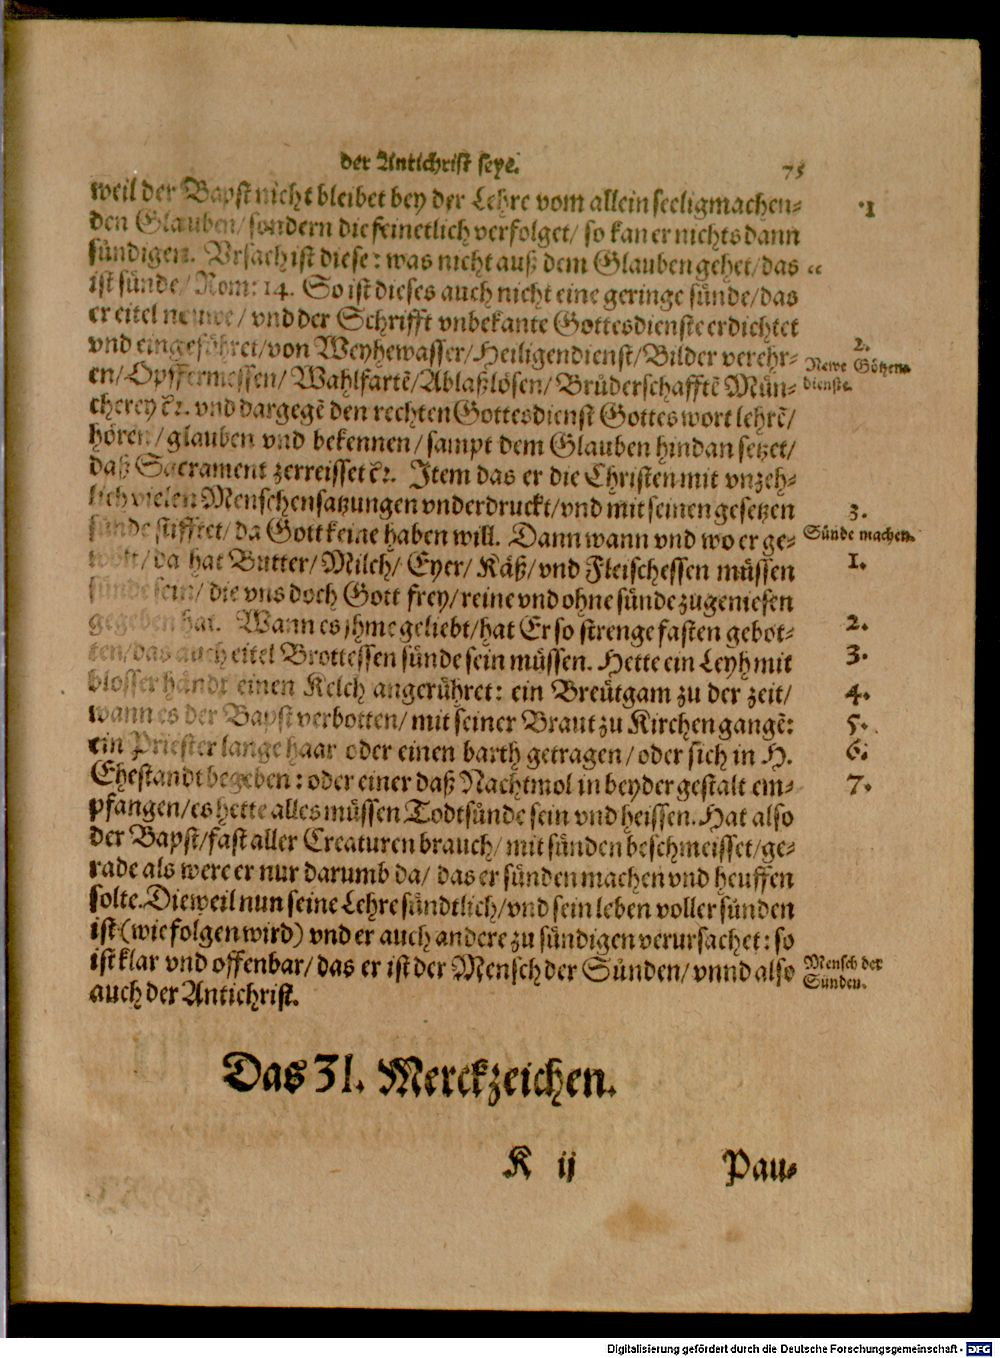 der Antichrist seye. 75
weil der Bapst nicht bleibet bey der Lehre vom allein seeligmachen⸗ 1.
den Glauben/ sondern die feinetlich verfolget/ so kan er nichts dann
sündigen. Vrsach ist diese: was nicht auß dem Glauben gehet/ das „
ist sünde/ Rom: 14. So ist dieses auch nicht eine geringe sünde/ das
er eitel neuwe/ vnd der Schrifft vnbekante Gottesdienste erdichtet
vnd eingeführet/ von Weyhewasser/ Heiligendienst/ Bilder verehr⸗ 2.
Newe Götzen⸗
dienste.
en/ Opffermessen/ Wahlfartē/ Ablaßlösen/ Brüderschafftē Mün⸗
cherey ꝛc. vnd dargegē den rechten Gottesdienst Gottes wort lehrē/
hören/ glauben vnd bekennen/ sampt dem Glauben hindan setzet/
daß Sacrament zerreisset ꝛc. Item das er die Christen mit vnzeh⸗
lich vielen Menschensatzungen vnderdruckt/ vnd mit seinen gesetzen 3.
Sünde machen.
sünde stifftet/ da Gott keine haben will. Dann wann vnd wo er ge⸗
wolt/ da hat Butter/ Milch/ Eyer/ Käß/ vnd Fleischessen müssen 1.
sünde sein/ die vns doch Gott frey/ reine vnd ohne sünde zugeniesen
gegeben hat. Wann es jhme geliebt/ hat Er so strenge fasten gebot⸗ 2.
ten/ das auch eitel Brottessen sünde sein müssen. Hette ein Leyh mit 3.
blosser handt einen Kelch angerühret: ein Breütgam zu der zeit/ 4.
wann es der Bapst verbotten/ mit seiner Braut zu Kirchen gangē: 5.
ein Priester lange haar oder einen barth getragen/ oder sich in H. 6.
Ehestandt begeben: oder einer daß Nachtmol in beyder gestalt em⸗ 7.
pfangen/ es hette alles müssen Todtsünde sein vnd heissen. Hat also
der Bapst/ fast aller Creaturen brauch/ mit sünden beschmeisset/ ge⸗
rade als were er nur darumb da/ das er sünden machen vnd heuffen
solte. Dieweil nun seine Lehre sündtlich/ vnd sein leben voller sünden
ist (wie folgen wird) vnd er auch andere zu sündigen verursachet: so
ist klar vnd offenbar/ das er ist der Mensch der Sünden/ vnnd also
Mensch der
Sünden.
auch der Antichrist.
Das 31. Merckzeichen.
K ij Pau⸗
Digitalisierung gefördert durch die Deutsche Forschungsgemeinschaft - DFG